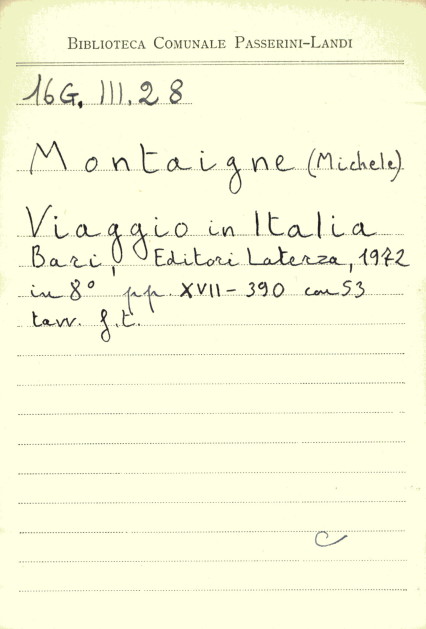 BIBLIOTECA COMUNALE PASSERINI-LANDI
16G. III. 28
Montaigne (Michele)
Viaggio in Italia
Bari, Editori Laterza, 1972
in 8° pp. XVII - 390 con 53
tavv. f.t.
C